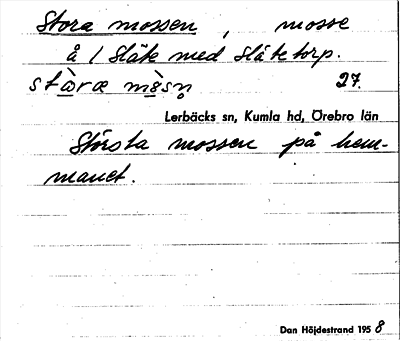 Stora mossen, mosse
å 1 Släte med Slätetorp.
27.
Lerbäcks sn, Kumla hd, Örebro län
Största mossen på hem-
manet.
Dan Höjdestrand 1958